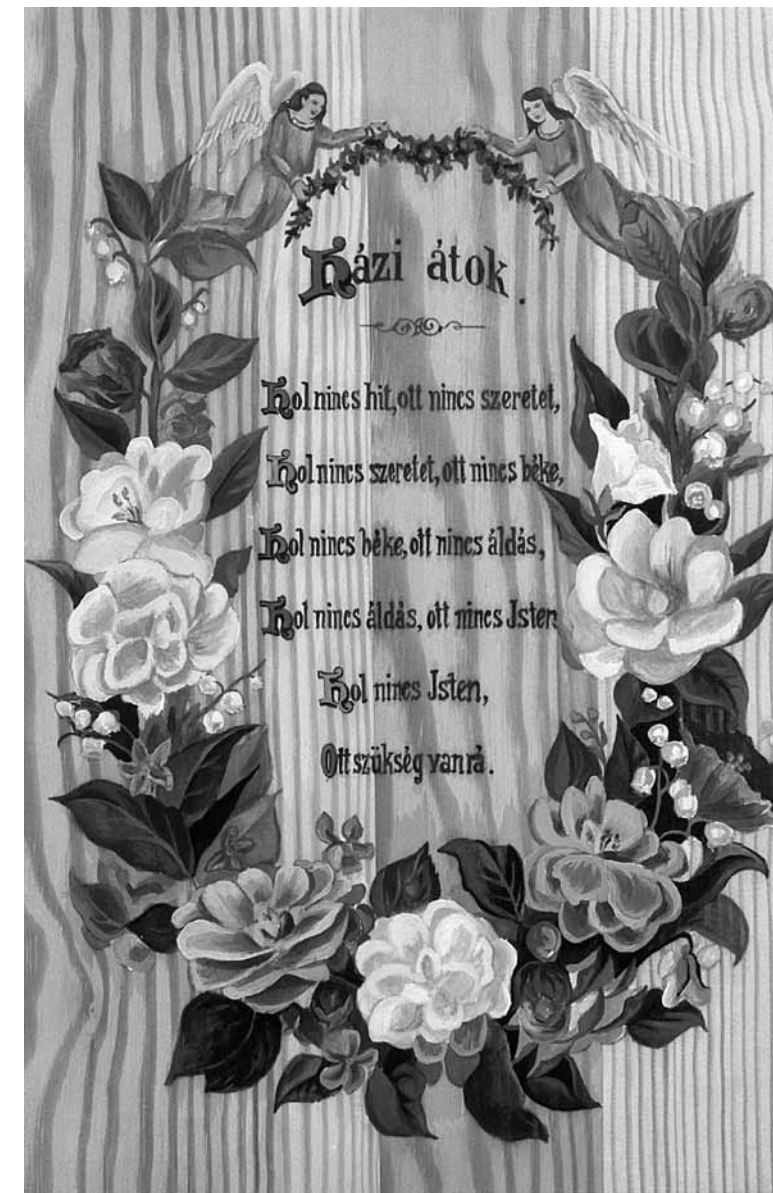 Házi átok.
Hol nincs hit, ott nincs szeretet,
Hol nincs szeretet, ott nincs béke,
Hol nincs béke, ott nincs áldás,
Hol nincs áldás, ott nincs Jsten
Hol nincs Jsten,
Ott szükség van rá.